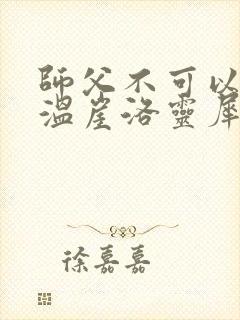 師父不可以
溫崖洛靈犀
徐嘉嘉